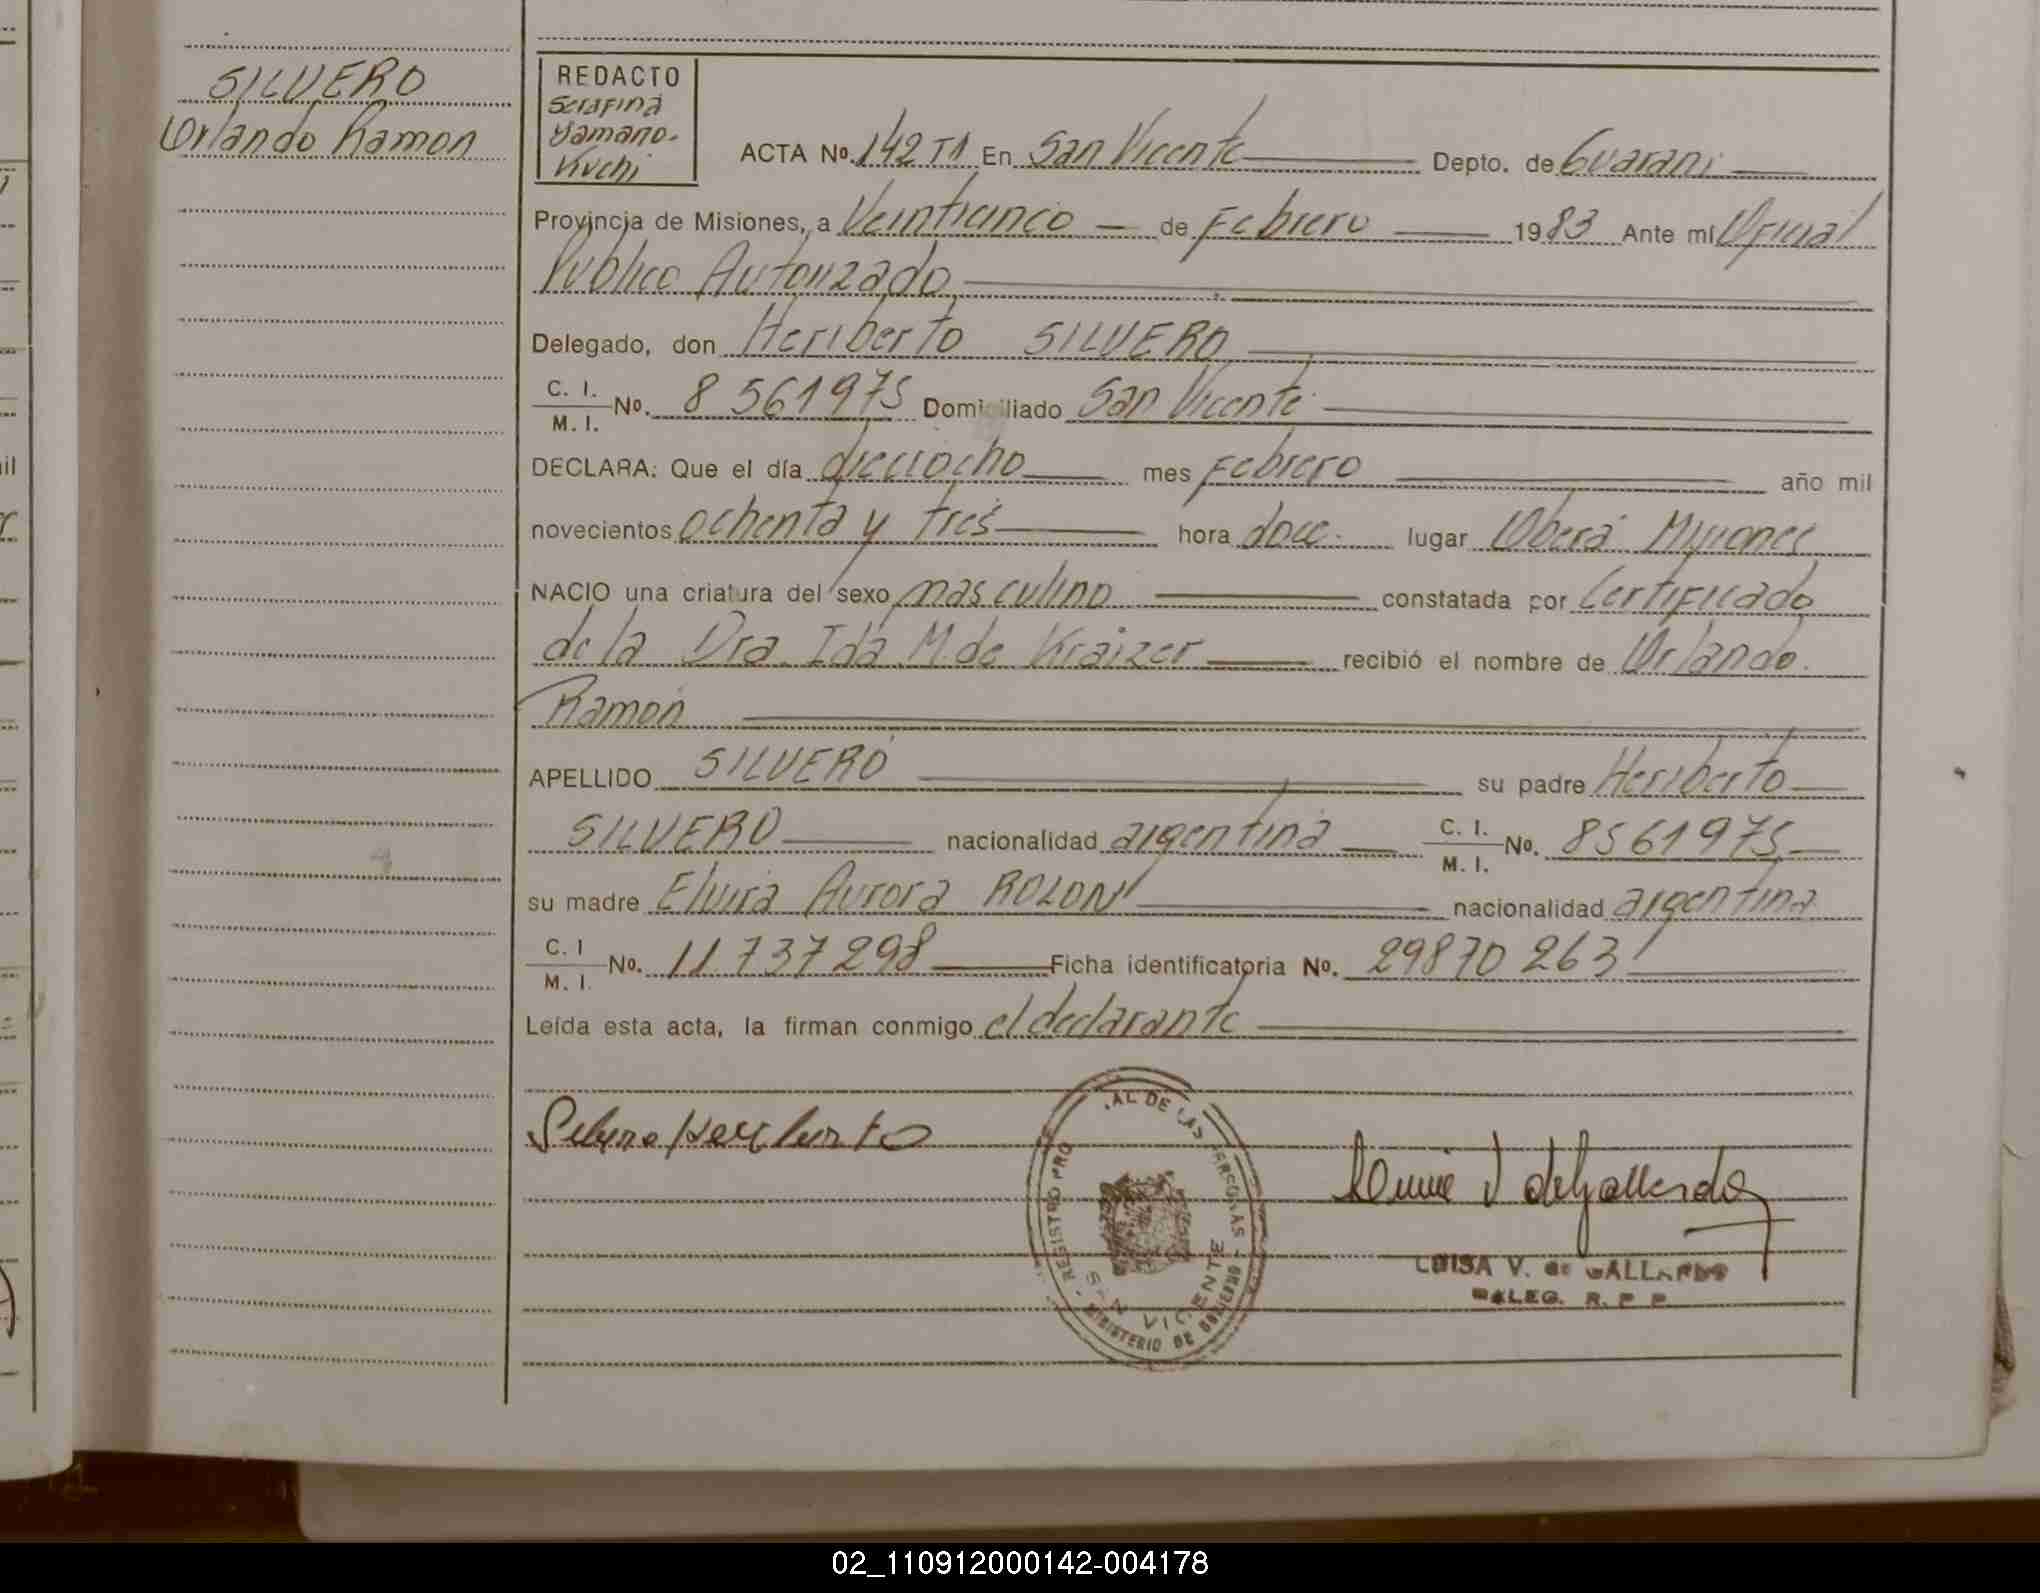 SILVERO
Orlando Ramon
REDACTO
Serafina
Yamano-
Kivchi
ACTA Nº. 142 T1 En San Vicente Depto. de Guarani
Provincia de Misiones, a Veinticinco de Febrero 1983 Ante mí Oficial
Publico Autorizado
Delegado, don Heriberto SILVERO
C. I.
M. I.
Nº. 8 561975 Domiciliado San Vicente
DECLARA: Que el día dieciocho mes Febrero año mil
novecientos ochenta y tres hora doce. lugar Oberá Misiones
NACIO una criatura del sexo masculino constatada por Certificado
de la Dra. Ida M. de Kraizer recibió el nombre de Orlando.
Ramón
APELLIDO SILVERO su padre Heriberto
SILVERO nacionalidad argentina C. I.
M. I.
Nº. 8561975
su madre Elvira Aurora ROLON nacionalidad argentina
C. I
M. I.
Nº. 11 737 298 Ficha identificatoria Nº. 29870 263
Leída esta acta, la firman conmigo el declarante
Silvero Heriberto
REGISTRO PRO AL DE LAS PERSONAS - MINISTERIO DE GOBIERNO -
SAN VICENTE
LUISA V. de GALLARDO
DELEG. R. P. P.
02_110912000142-004178